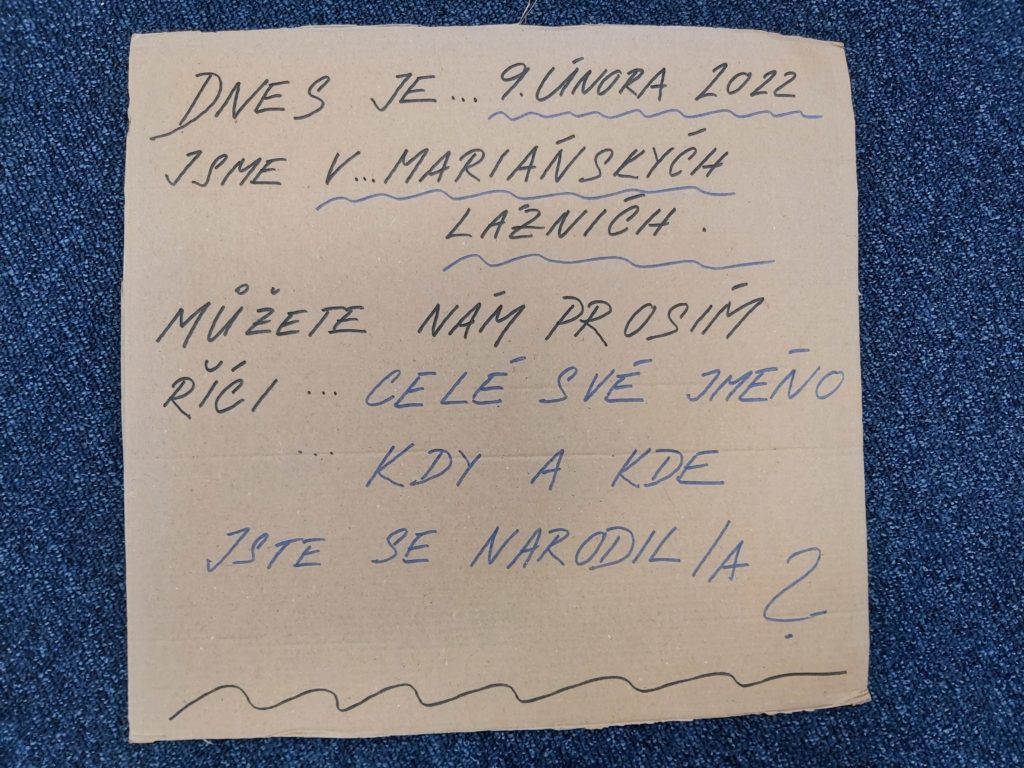 DNES JE... 9. ÚNORA 2022
JSME V... MARIÁNSKÝCH
LÁZNÍCH.
MŮŽETE NÁM PROSÍM
ŘÍCI ... CELÉ SVÉ JMÉNO
.... KDY A KDE
JSTE SE NARODIL/A ?